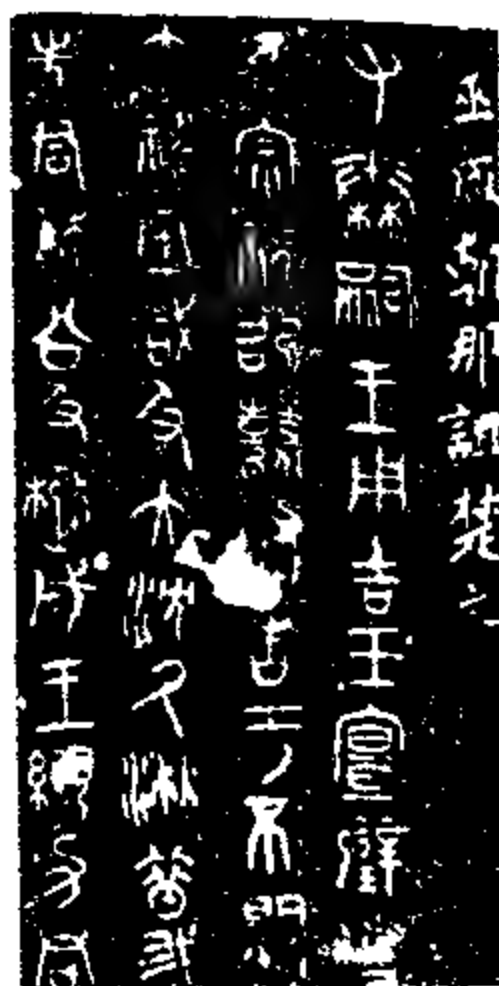 巫咸朝那詛楚
又秦嗣王用吉玉宣璧
宗祝邵鼛告于不顯
大神及大沈久湫昔我
先君穆公及楚成王繆力同